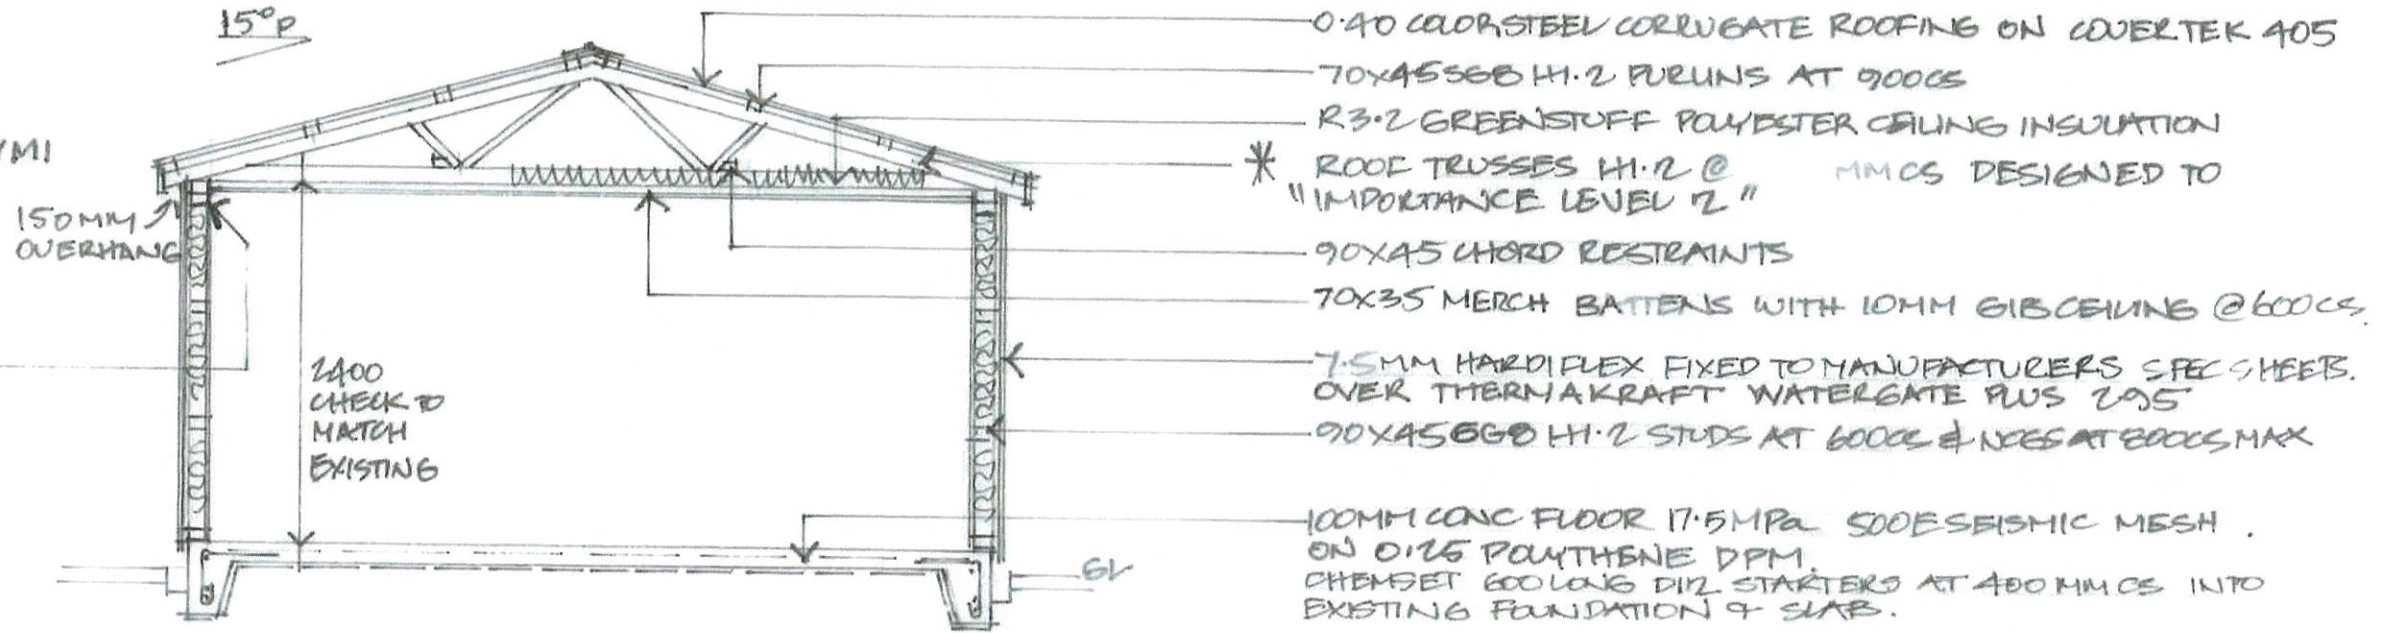 15° P
0.40 COLORSTEEL CORRUGATE ROOFING ON COVERTEK 405
70X45 SG8 H1.2 PURLINS AT 900CS
R3.2 GREENSTUFF POLYESTER CEILING INSULATION
* ROOF TRUSSES H1.2 @ MMCS DESIGNED TO
"IMPORTANCE LEVEL 2"
150MM
OVERHANG
90X45 CHORD RESTRAINTS
70X35 MERCH BATTENS WITH 10MM GIB CEILING @ 600CS.
2400
CHECK TO
MATCH
EXISTING
7.5MM HARDIFLEX FIXED TO MANUFACTURERS SPEC SHEETS.
OVER THERMAKRAFT WATERGATE PLUS 295
90X45 SG8 H1.2 STUDS AT 600CS & NOGS AT 800CS MAX
100MM CONC FLOOR 17.5MPa 500E SEISMIC MESH.
ON 0.25 POLYTHENE DPM.
CHEMSET 600 LONG D12 STARTERS AT 400MMCS INTO
EXISTING FOUNDATION & SLAB.
GL